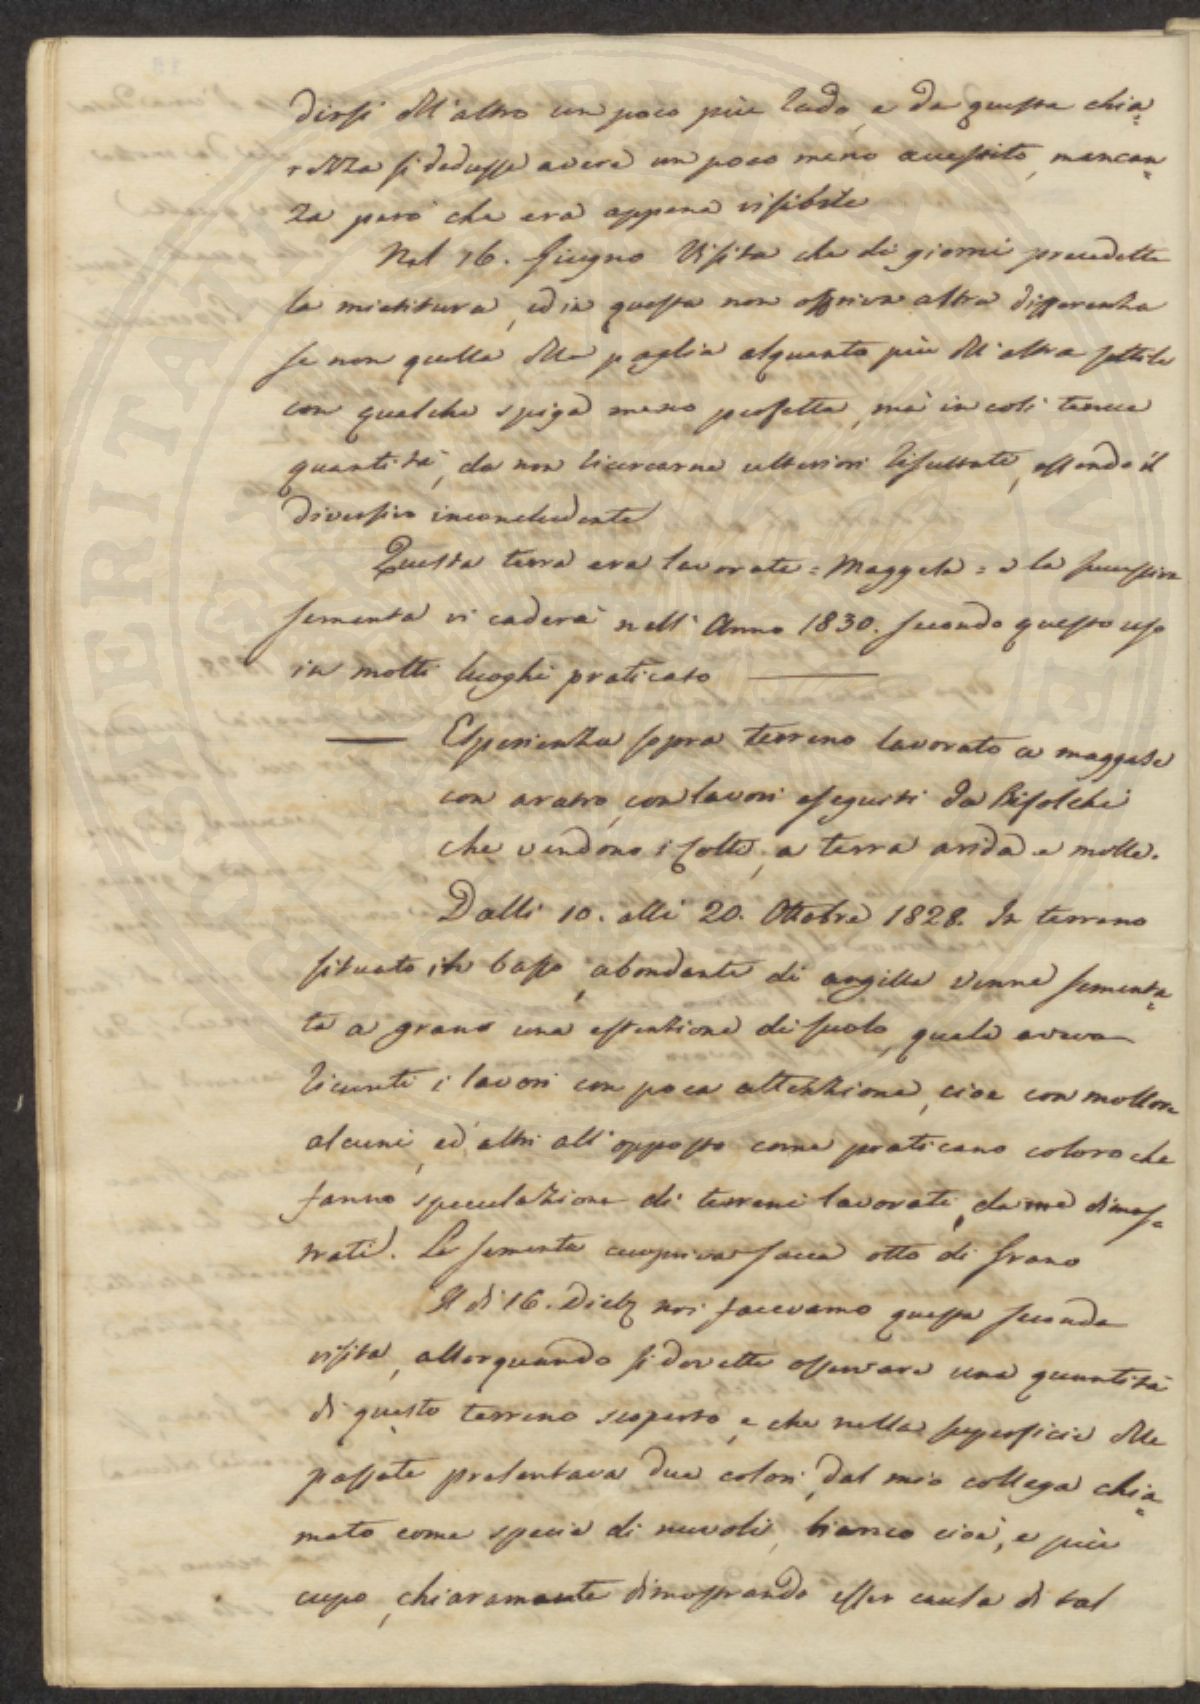 dirsi dell'altro un poco più rado, e da questa chia=
rezza si dedusse avere un poco meno accestito, mancan=
za però che era appena visibile
Nel 16. Giugno Visita che di giorni precedette
la mietitura, ed in questa non offriva altra differenza
se non quella della paglia alquanto più dell'altra sottile
con qualche spiga meno perfetta, ma in così tenue
quantità, da non ricercarne ulteriori risultati, essendo il
diversivo inconcludente
Questa terra era lavorata = Maggese = e la successiva
sementa vi caderà nell'Anno 1830. secondo questo uso
in molti luoghi praticato
Esperienza sopra terreno lavorato a maggese
con aratro, con lavori eseguiti da Bifolchi
che vendono i colti, a terra arida e molle.
Dalli 10. alli 20. Ottobre 1828. In terreno
situato in basso, abondante di argilla venne sementa=
ta a grano una estensione di suolo, quale aveva
ricevuti i lavori con poca attenzione, cioè con mollore
alcuni, ed altri all'opposto come praticano coloro che
fanno speculazione di terreni lavorati, da me dimos=
trati. La sementa cuopriva sacca otto di Grano
Il dì 16. Dicb. noi facevamo questa seconda
visita, allorquando si dovette osservare una quantità
di questo terreno scoperto, e che nella superficie delle
passate presentava due colori, dal mio collega chia=
mato come specie di nuvoli, bianco cioè, e più
cupo, chiaramente dimostrando esser causa di tal